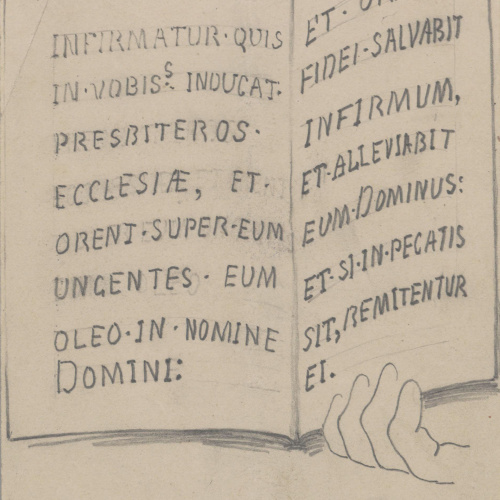 INFIRMATUR·QUIS
IN·VOBIS·S INDUCAT·
PRESBITEROS·
ECCLESIÆ, ET·
ORENT·SUPER·EUM
UNGENTES· EUM
OLEO·IN·NOMINE
DOMINI:
ET·
FIDEI·SALVABIT
INFIRMUM,
ET·ALLEVIABIT
EUM·DOMINUS:
ET·SI·IN·PECATIS
SIT, REMITENTUR
EI.